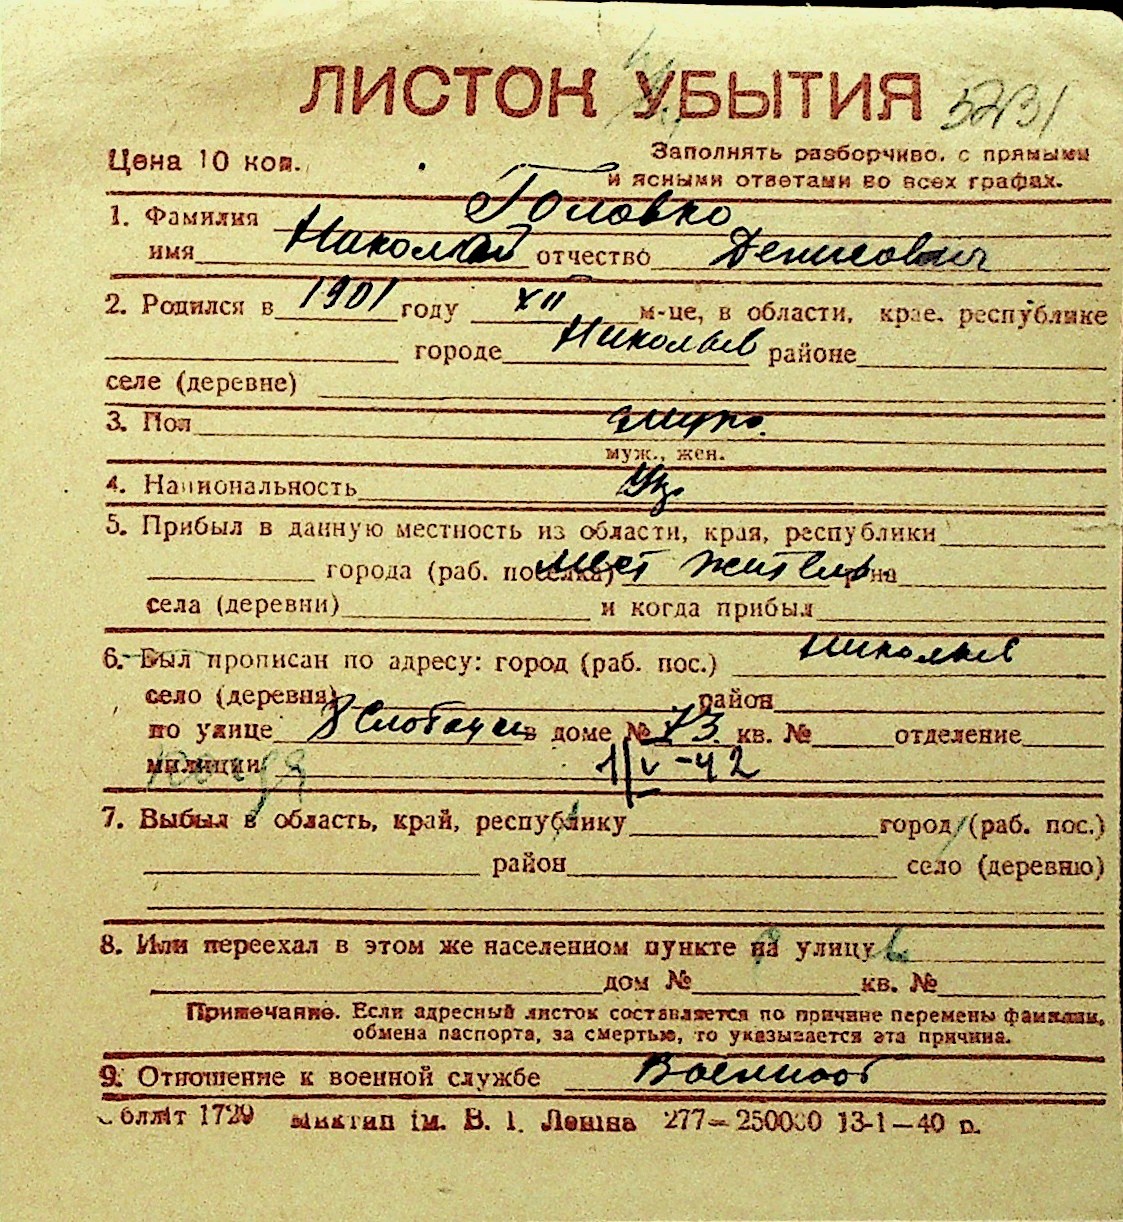 ЛИСТОК УБЫТИЯ 5231
Цена 10 коп. Заполнять разборчиво, с прямыми
и ясными ответами во всех графах.
1. Фамилия Головко
имя Николай отчество Денисович
2. Родился в 1901 году XII м-це, в области, крае, республике
городе Николаев районе
селе (деревне)
3. Пол муж.
муж., жен.
4. Национальность
5. Прибыл в данную местность из области, края, республики
города (раб. поселка) мест житель р-на
села (деревни) и когда прибыл
6. Был прописан по адресу: город (раб. пос.) Николаев
село (деревня) район
по улице 8 Слободск в доме № 73 кв. № отделение
милиции 1/V-42
7. Выбыл в область, край, республику город (раб. пос.)
район село (деревню)
8. Или переехал в этом же населенном пункте на улицу
дом № кв. №
Примечание. Если адресный листок составляется по причине перемены фамилии,
обмена паспорта, за смертью, то указывается эта причина.
9. Отношение к военной службе Военнооб
Обллiт 1729 Миктип iм. В. I. Ленiна 277—250000 13-1—40 р.